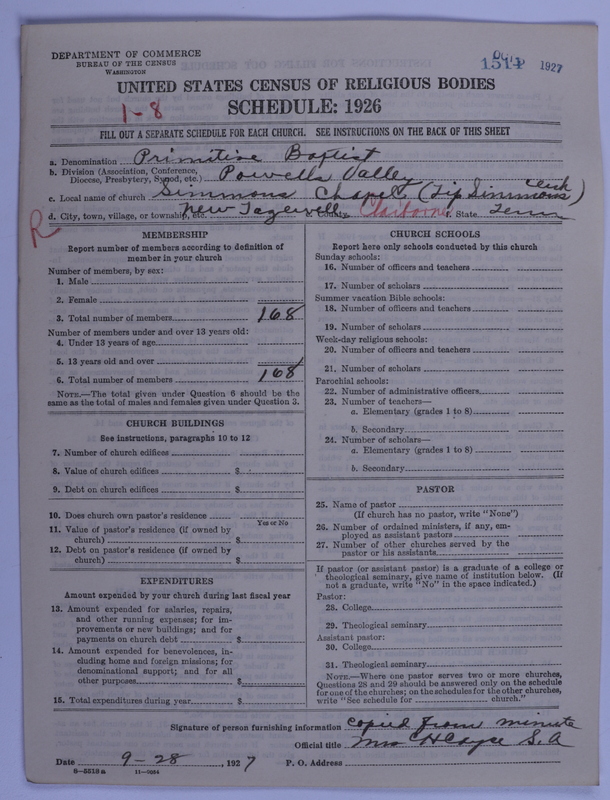 DEPARTMENT OF COMMERCE
BUREAU OF THE CENSUS
WASHINGTON
1927
UNITED STATES CENSUS OF RELIGIOUS BODIES
SCHEDULE: 1926
1-8
FILL OUT A SEPARATE SCHEDULE FOR EACH CHURCH. SEE INSTRUCTIONS ON THE BACK OF THIS SHEET
a. Denomination Primitive Baptist
b. Division (Association, Conference, Diocese, Presbytery, Synod, etc.) Powells Valley
c. Local name of church Simmons Chapel (Tip Simmons Clerk)
d. City, town, village, or township, etc. New Tazewell e. County Claiborne f. State Tenn
R
MEMBERSHIP
Report number of members according to definition of
member in your church
Number of members, by sex:
1. Male
2. Female
3. Total number of members 168
Number of members under and over 13 years old:
4. Under 13 years of age
5. 13 years old and over
6. Total number of members 168
NOTE.—The total given under Question 6 should be the
same as the total of males and females given under Question 3.
CHURCH BUILDINGS
See instructions, paragraphs 10 to 12
7. Number of church edifices
8. Value of church edifices $
9. Debt on church edifices $
10. Does church own pastor's residence
Yes or No
11. Value of pastor's residence (if owned by
church) $
12. Debt on pastor's residence (if owned by
church) $
EXPENDITURES
Amount expended by your church during last fiscal year
13. Amount expended for salaries, repairs,
and other running expenses; for im-
provements or new buildings; and for
payments on church debt $
14. Amount expended for benevolences, in-
cluding home and foreign missions; for
denominational support; and for all
other purposes $
15. Total expenditures during year $
CHURCH SCHOOLS
Report here only schools conducted by this church
Sunday schools:
16. Number of officers and teachers
17. Number of scholars
Summer vacation Bible schools:
18. Number of officers and teachers
19. Number of scholars
Week-day religious schools:
20. Number of officers and teachers
21. Number of scholars
Parochial schools:
22. Number of administrative officers
23. Number of teachers—
a. Elementary (grades 1 to 8)
b. Secondary
24. Number of scholars—
a. Elementary (grades 1 to 8)
b. Secondary
PASTOR
25. Name of pastor
(If church has no pastor, write "None")
26. Number of ordained ministers, if any, em-
ployed as assistant pastors
27. Number of other churches served by the
pastor or his assistants
If pastor (or assistant pastor) is a graduate of a college or
theological seminary, give name of institution below. (If
not a graduate, write "No" in the space indicated.)
Pastor:
28. College
29. Theological seminary
Assistant pastor:
30. College
31. Theological seminary
NOTE.—Where one pastor serves two or more churches,
Questions 28 and 29 should be answered only on the schedule
for one of the churches; on the schedules for the other churches,
write "See schedule for church."
Signature of person furnishing information copied from minute
Official title Mrs C H Cayce S.A
Date 9-28, 1927 P. O. Address
11—9094